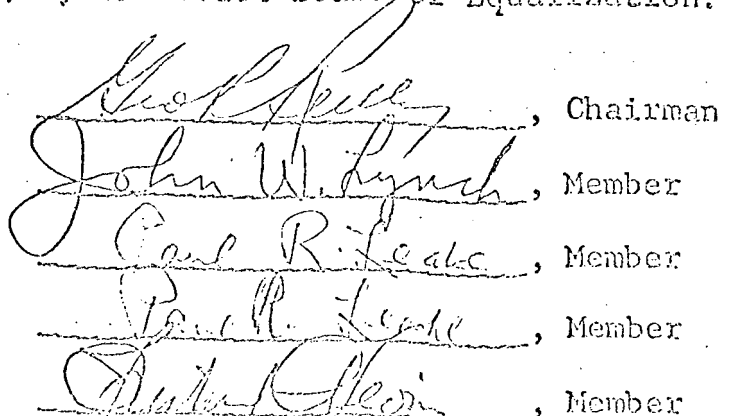 of Equalization.
Geo R Reilly, Chairman
John W. Lynch, Member
Paul R. Leake, Member
Paul R. Leake, Member
Richard Nevins, Member